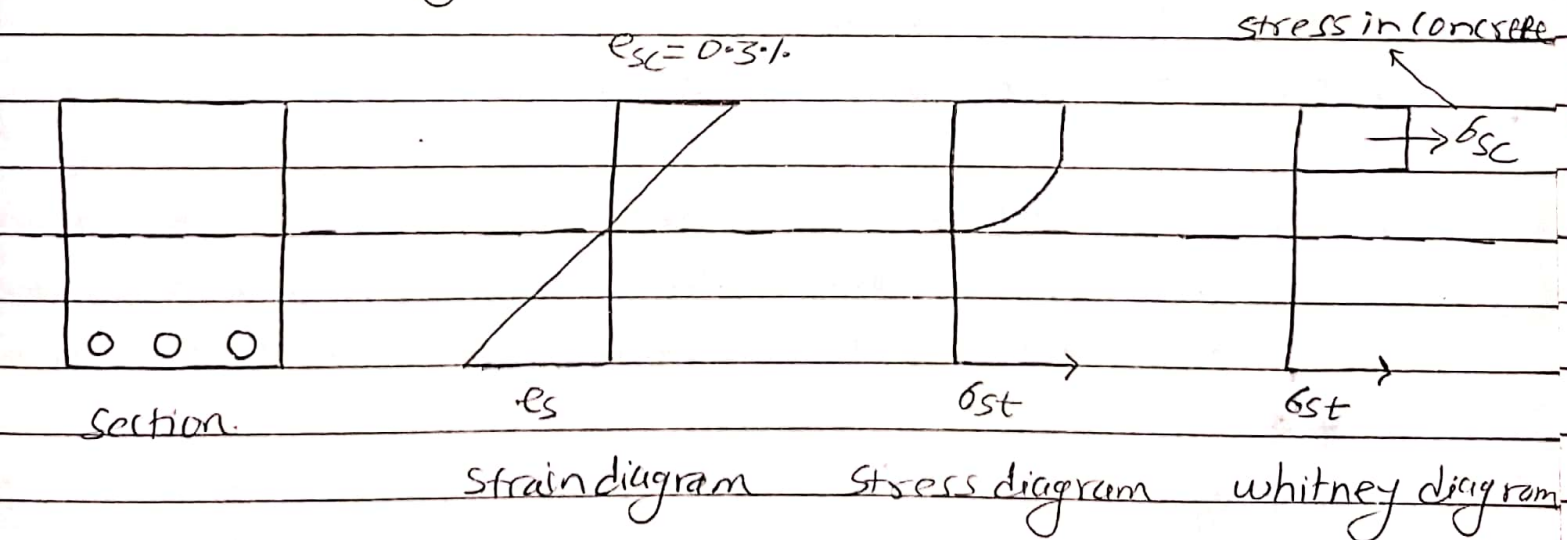 stress in concrete
esc = 0.3%
σsc
es
σst
σst
Section.
strain diagram
stress diagram
whitney diagram